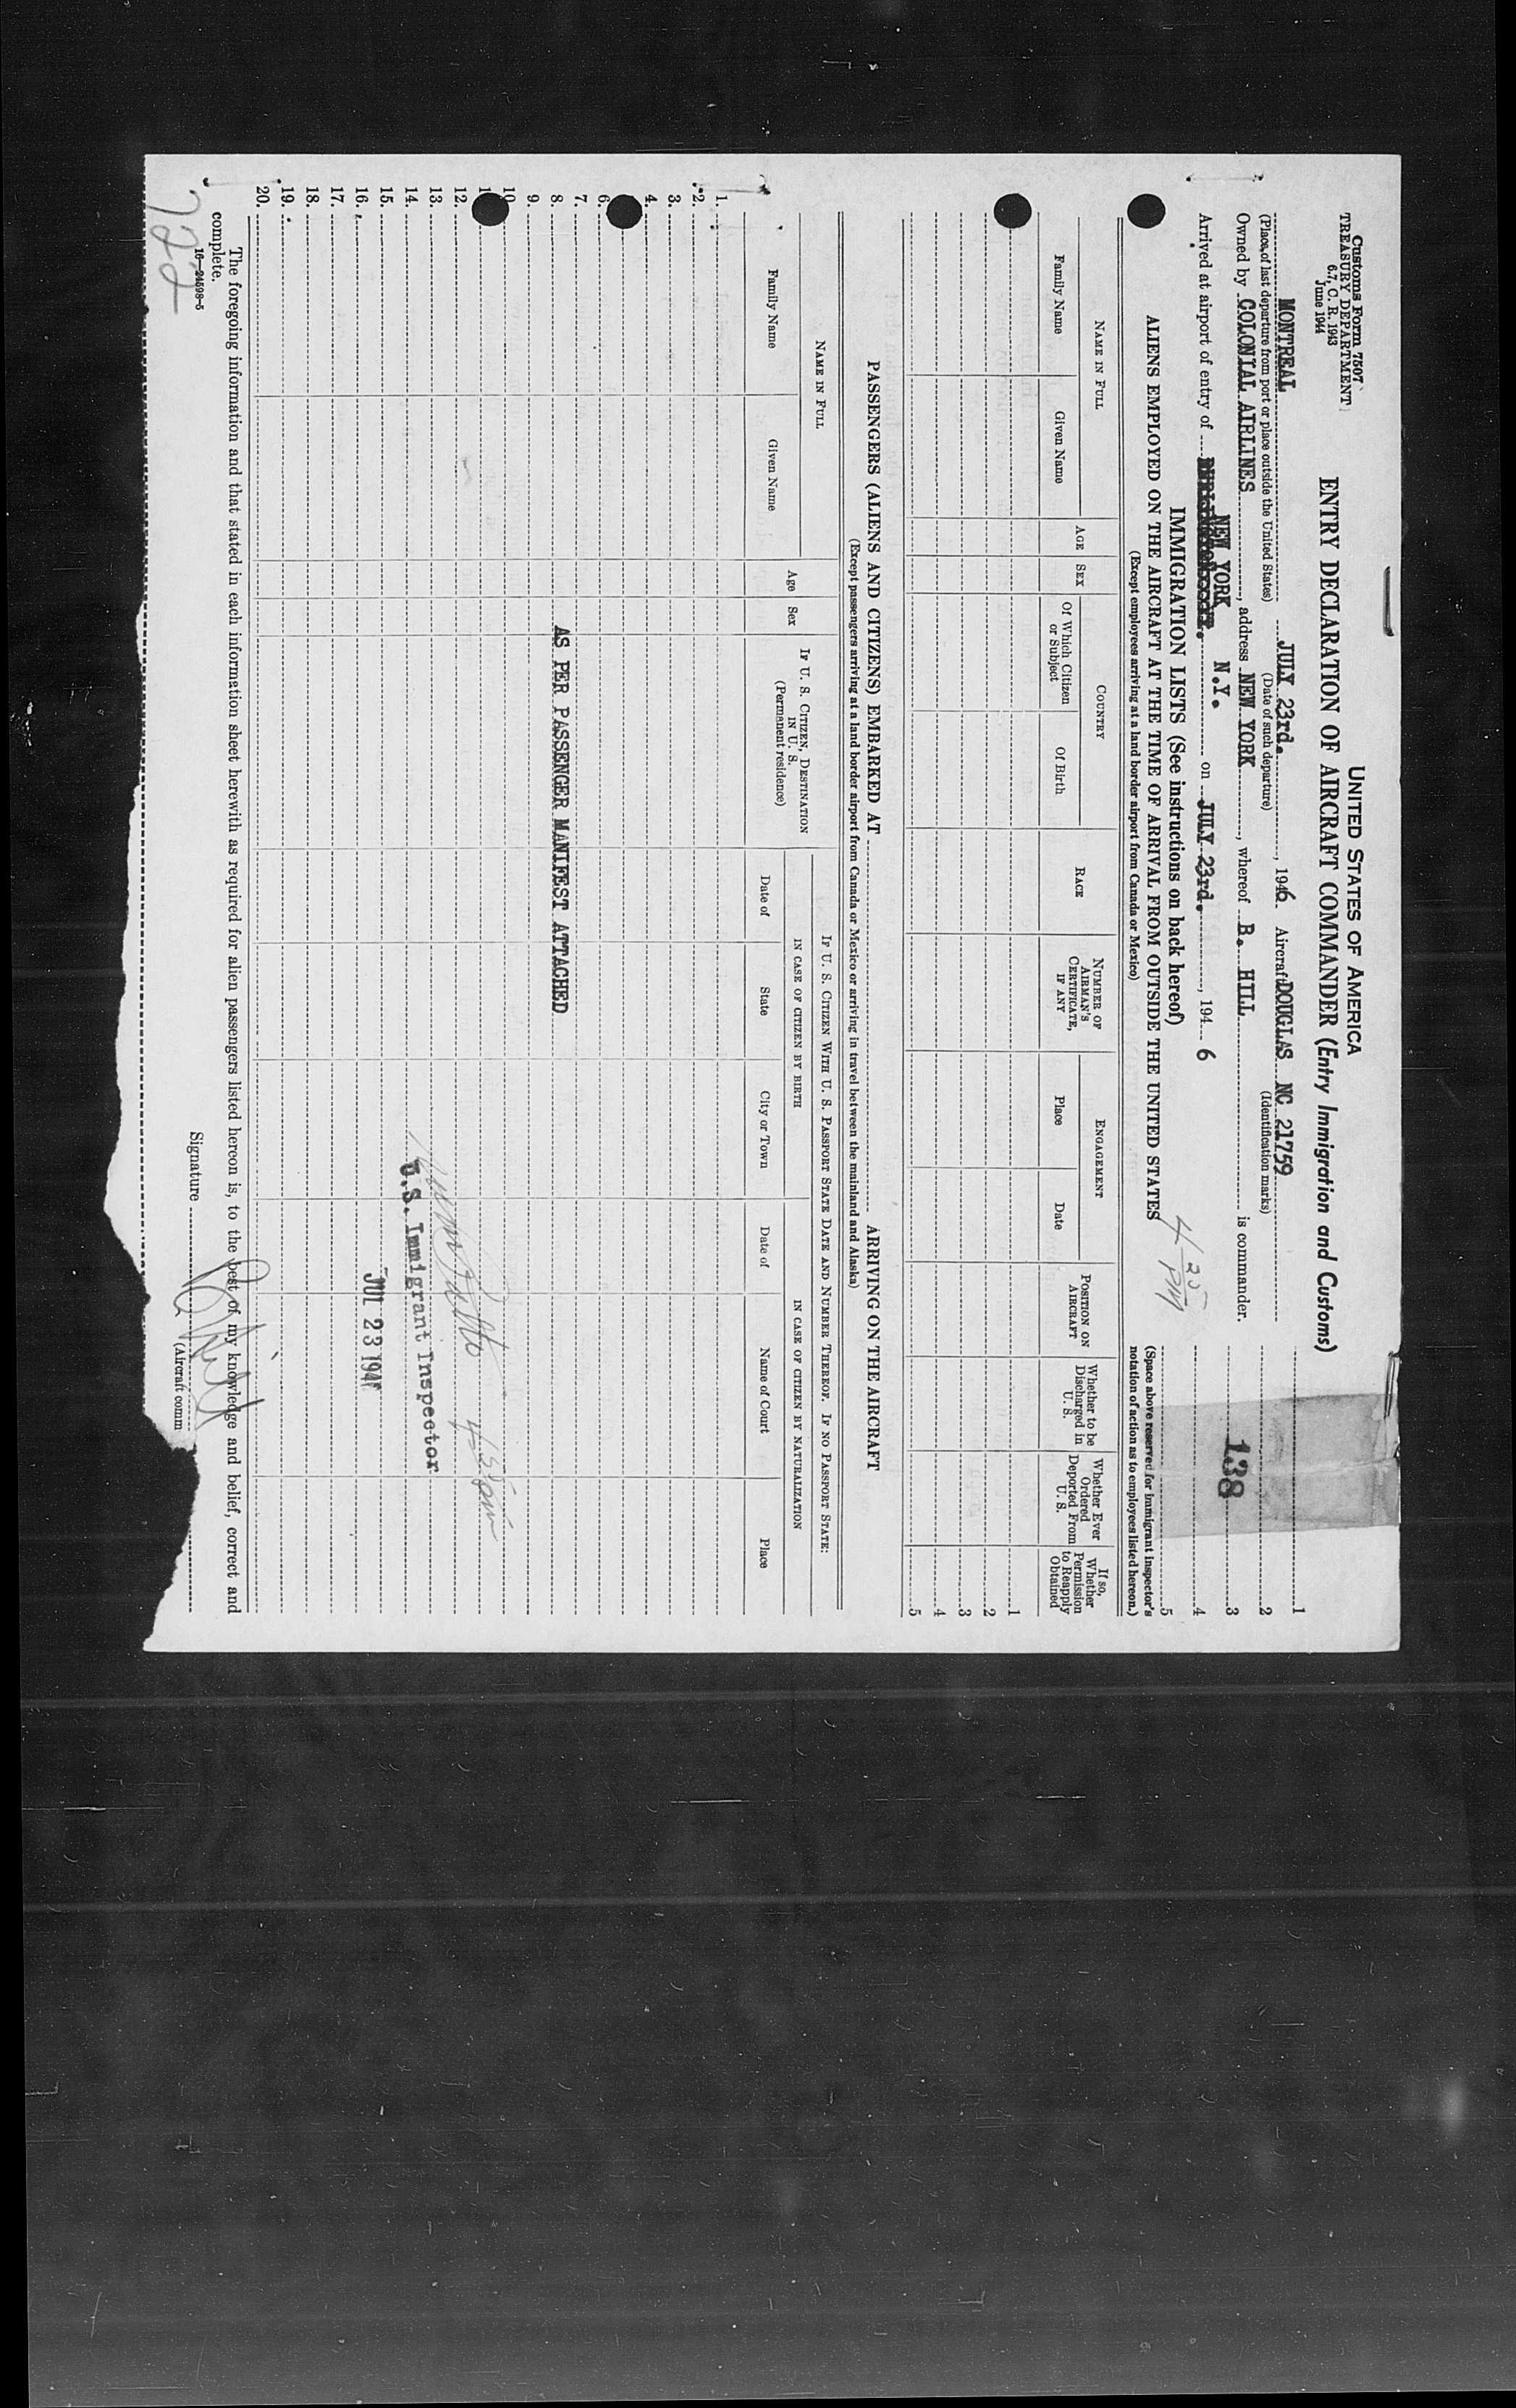 Customs Form 7507
TREASURY DEPARTMENT
6.7, C. R. 1943
June 1944
UNITED STATES OF AMERICA
ENTRY DECLARATION OF AIRCRAFT COMMANDER (Entry Immigration and Customs)
MONTREAL JULY 23rd., 1946 Aircraft DOUGLAS NC 21759
(Place of last departure from port or place outside the United States) (Date of such departure) (Identification marks)
Owned by COLONIAL AIRLINES, address NEW YORK, whereof B. HILL is commander.
NEW YORK N.Y.
Arrived at airport of entry of on JULY 23rd., 194 6
4 25 PM
138
1
2
3
4
5
(Space above reserved for immigrant inspector's notation of action as to employees listed hereon.)
IMMIGRATION LISTS (See instructions on back hereof)
ALIENS EMPLOYED ON THE AIRCRAFT AT THE TIME OF ARRIVAL FROM OUTSIDE THE UNITED STATES
(Except employees arriving at a land border airport from Canada or Mexico)
NAME IN FULL
Family Name
Given Name
AGE
SEX
COUNTRY
Of Which Citizen or Subject
Of Birth
RACE
NUMBER OF AIRMAN'S CERTIFICATE, IF ANY
ENGAGEMENT
Place
Date
POSITION ON AIRCRAFT
Whether to be Discharged in U. S.
Whether Ever Ordered Deported From U. S.
If so, Whether Permission to Reapply Obtained
1
2
3
4
5
PASSENGERS (ALIENS AND CITIZENS) EMBARKED AT ARRIVING ON THE AIRCRAFT
(Except passengers arriving at a land border airport from Canada or Mexico or arriving in travel between the mainland and Alaska)
NAME IN FULL
Family Name
Given Name
Age
Sex
IF U. S. CITIZEN, DESTINATION IN U. S.
(Permanent residence)
IF U. S. CITIZEN WITH U. S. PASSPORT STATE DATE AND NUMBER THEREOF. IF NO PASSPORT STATE:
IN CASE OF CITIZEN BY BIRTH
Date of
State
City or Town
IN CASE OF CITIZEN BY NATURALIZATION
Date of
Name of Court
Place
1.
2.
3.
4.
6.
7.
8. AS PER PASSENGER MANIFEST ATTACHED
9.
10
1
12.
13.
14.
15.
16.
17.
18.
19.
20.
U.S. Immigrant Inspector
JUL 23 194
The foregoing information and that stated in each information sheet herewith as required for alien passengers listed hereon is, to the best of my knowledge and belief, correct and
complete.
16—24598-5
Signature B Hill
(Aircraft comm
722